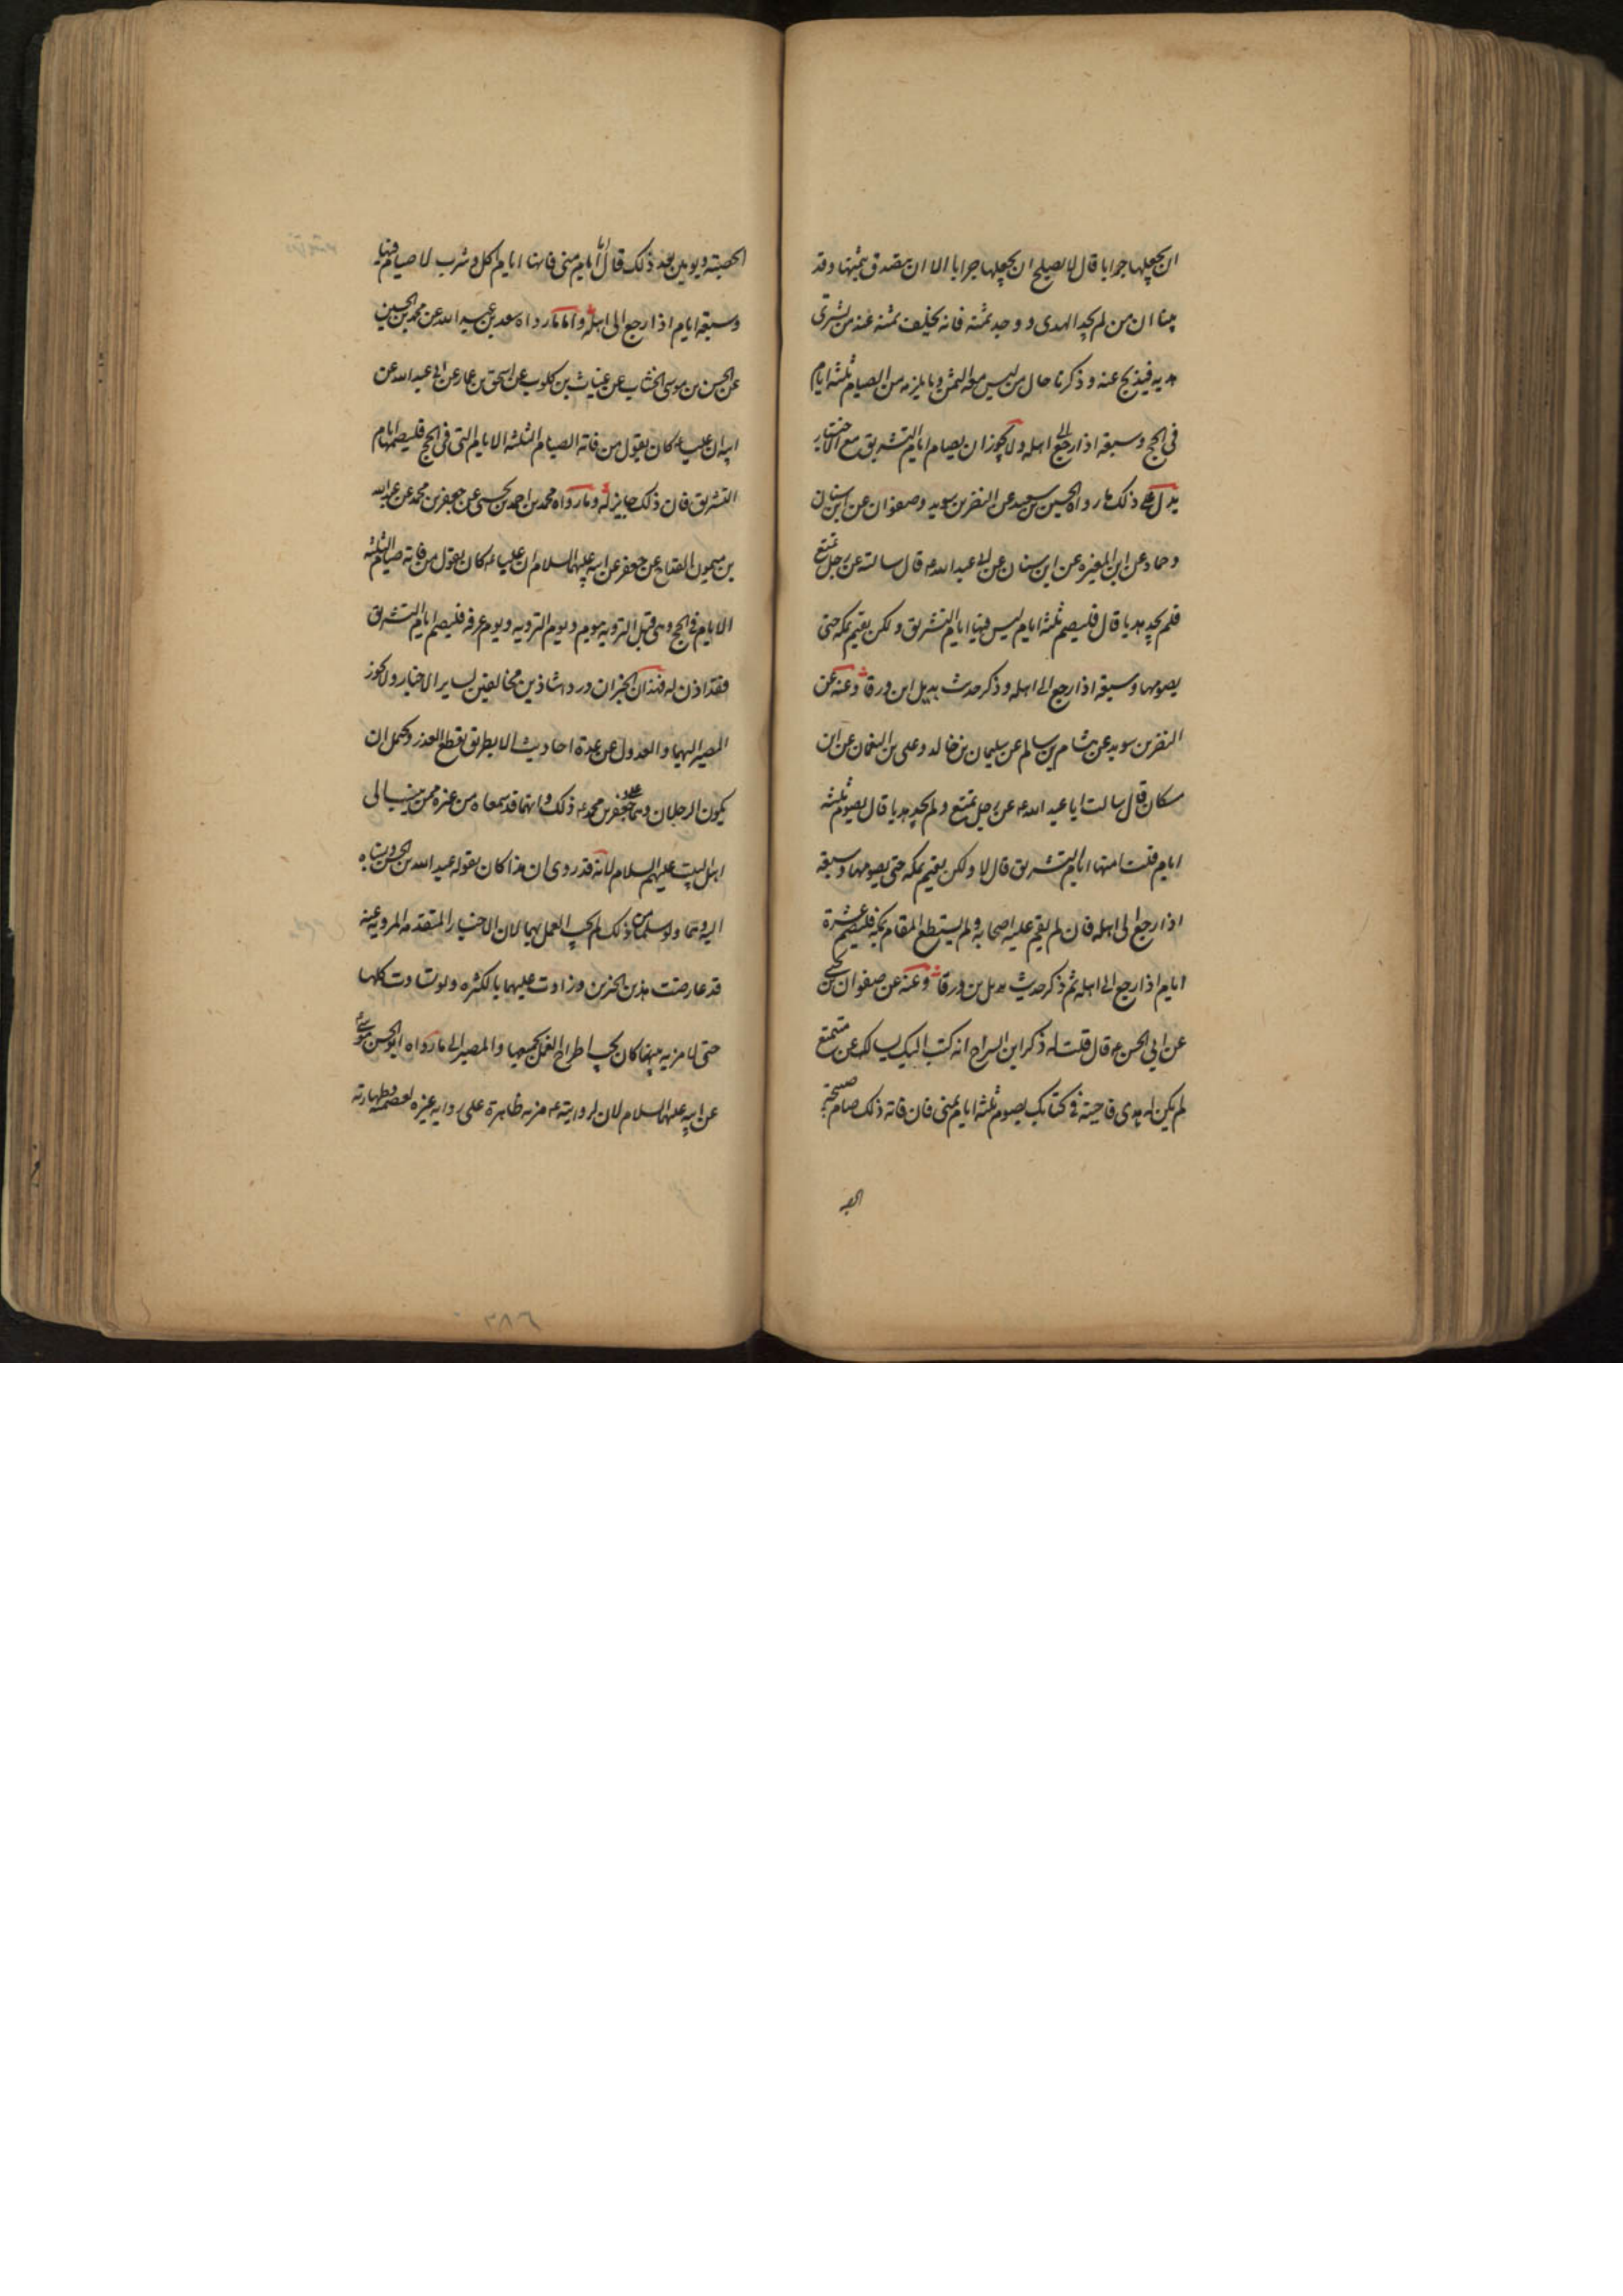 ان يجعلها جرابا قال لا يصلح ان يجعلها جرابا الا ان يتصدق بثمنها وقد
بينا ان من لم يجد الهدى و وجد ثمنه فانه يخلف ثمنه عند من يشترى
هديه فيذبح عنه و ذكرنا حال من ليس معه الثمن و ما يلزمه من الصيام ثلثة ايام
فى الحج و سبعة اذا رجع الى اهله ولا يجوز ان يصام ايام التشريق مع الاختيار
يدل على ذلك ما رواه الحسين بن سعيد عن النضر بن سويد و صفوان عن ابن سنان
و حماد عن ابن المغيرة عن ابن سنان عن ابى عبد الله ع قال سالته عن رجل تمتع
فلم يجد هديا قال فليصم ثلثة ايام ليس فيها ايام التشريق و لكن يقيم بمكة حتى
يصومها و سبعة اذا رجع الى اهله و ذكر حديث بديل ابن ورقا وعنه عن
النضر بن سويد عن هشام بن سالم عن سليمان بن خالد و على بن النعمان عن ابن
مسكان قال سالت ابا عبد الله ع عن رجل تمتع و لم يجد هديا قال يصوم ثلثة
ايام قلت امنها ايام التشريق قال لا ولكن يقيم بمكة حتى يصومها و سبعة
اذا رجع الى اهله فان لم يقم عليه اصحابه و لم يستطع المقام بمكة فليصم عشرة
ايام اذا رجع الى اهله ثم ذكر حديث بديل بن ورقا وعنه عن صفوان بن يحيى
عن ابى الحسن ع قال قلت له ذكر ابن السراج انه كتب اليك يسالك عن متمتع
لم يكن له هدى فاجبته فى كتابك يصوم ثلثة ايام بمنى فان فاته ذلك صام صبيحة
الحصبة
الحصبة و يومين بعد ذلك قال اما ايام منى فانها ايام اكل و شرب لا صيام فيها
و سبعة ايام اذا رجع الى اهله و اما ما رواه سعد بن عبد الله عن محمد بن الحسين
عن الحسن بن موسى الخشاب عن غياث بن كلوب عن اسحق بن عمار عن ابى عبد الله عن
ابيه ان عليا ع كان يقول من فاته الصيام الثلثة الايام التى فى الحج فليصمها ايام
التشريق فان ذلك جايز له و ما رواه محمد بن احمد بن يحيى عن جعفر بن محمد عن عبد الله
بن ميمون القداح عن جعفر عن ابيه عليهما السلام ان عليا ع كان يقول من فاته صيام الثلثة
الايام فى الحج و هى قبل التروية بيوم و يوم التروية و يوم عرفة فليصم ايام التشريق
فقد اذن له فهذان الخبران وردا شاذين مخالفين لساير الاخبار ولا يجوز
المصير اليهما و العدول عن عدة احاديث الا بطريق يقطع العذر و يحتمل ان
يكون الرجلان وهما على جعفر بن محمد ع ذلك و انهما قد سمعاه من غيره ممن ينسب الى
اهل البيت عليهم السلام لانه قد روى ان هذا كان يقوله عبد الله بن الحسن و نسباه
اليه وهما و لو سلما من ذلك لم يجب العمل بهما لان الاخبار المتقدمة المروية عنه
قد عارضت هذين الخبرين و زادت عليهما بالكثرة و لو تساوت كلها
حتى لا مزية بينها كان يجب اطراح العمل بجميعها و المصير الى ما رواه ابو الحسن موسى ع
عن ابيه عليهما السلام لان لروايته ع مزية ظاهرة على رواية غيره لعصمته و طهارته